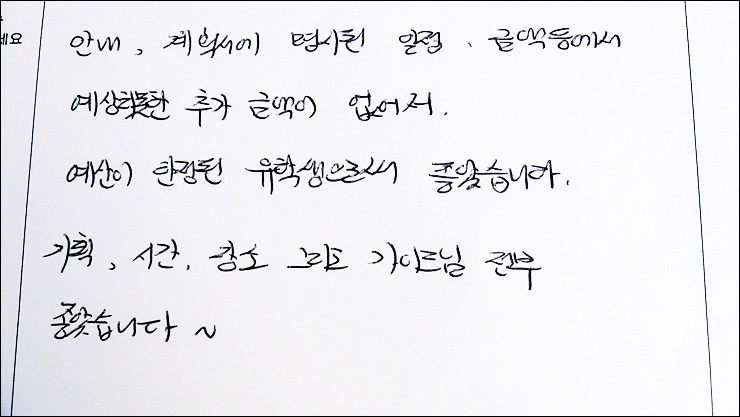 세요
안내, 계획서에 명시된 일정, 금액등에서
예상하지못한 추가 금액이 없어서.
예산이 한정된 유학생으로써 좋았습니다.
기획, 시간, 장소 그리고 가이드님 전부
좋았습니다 ~